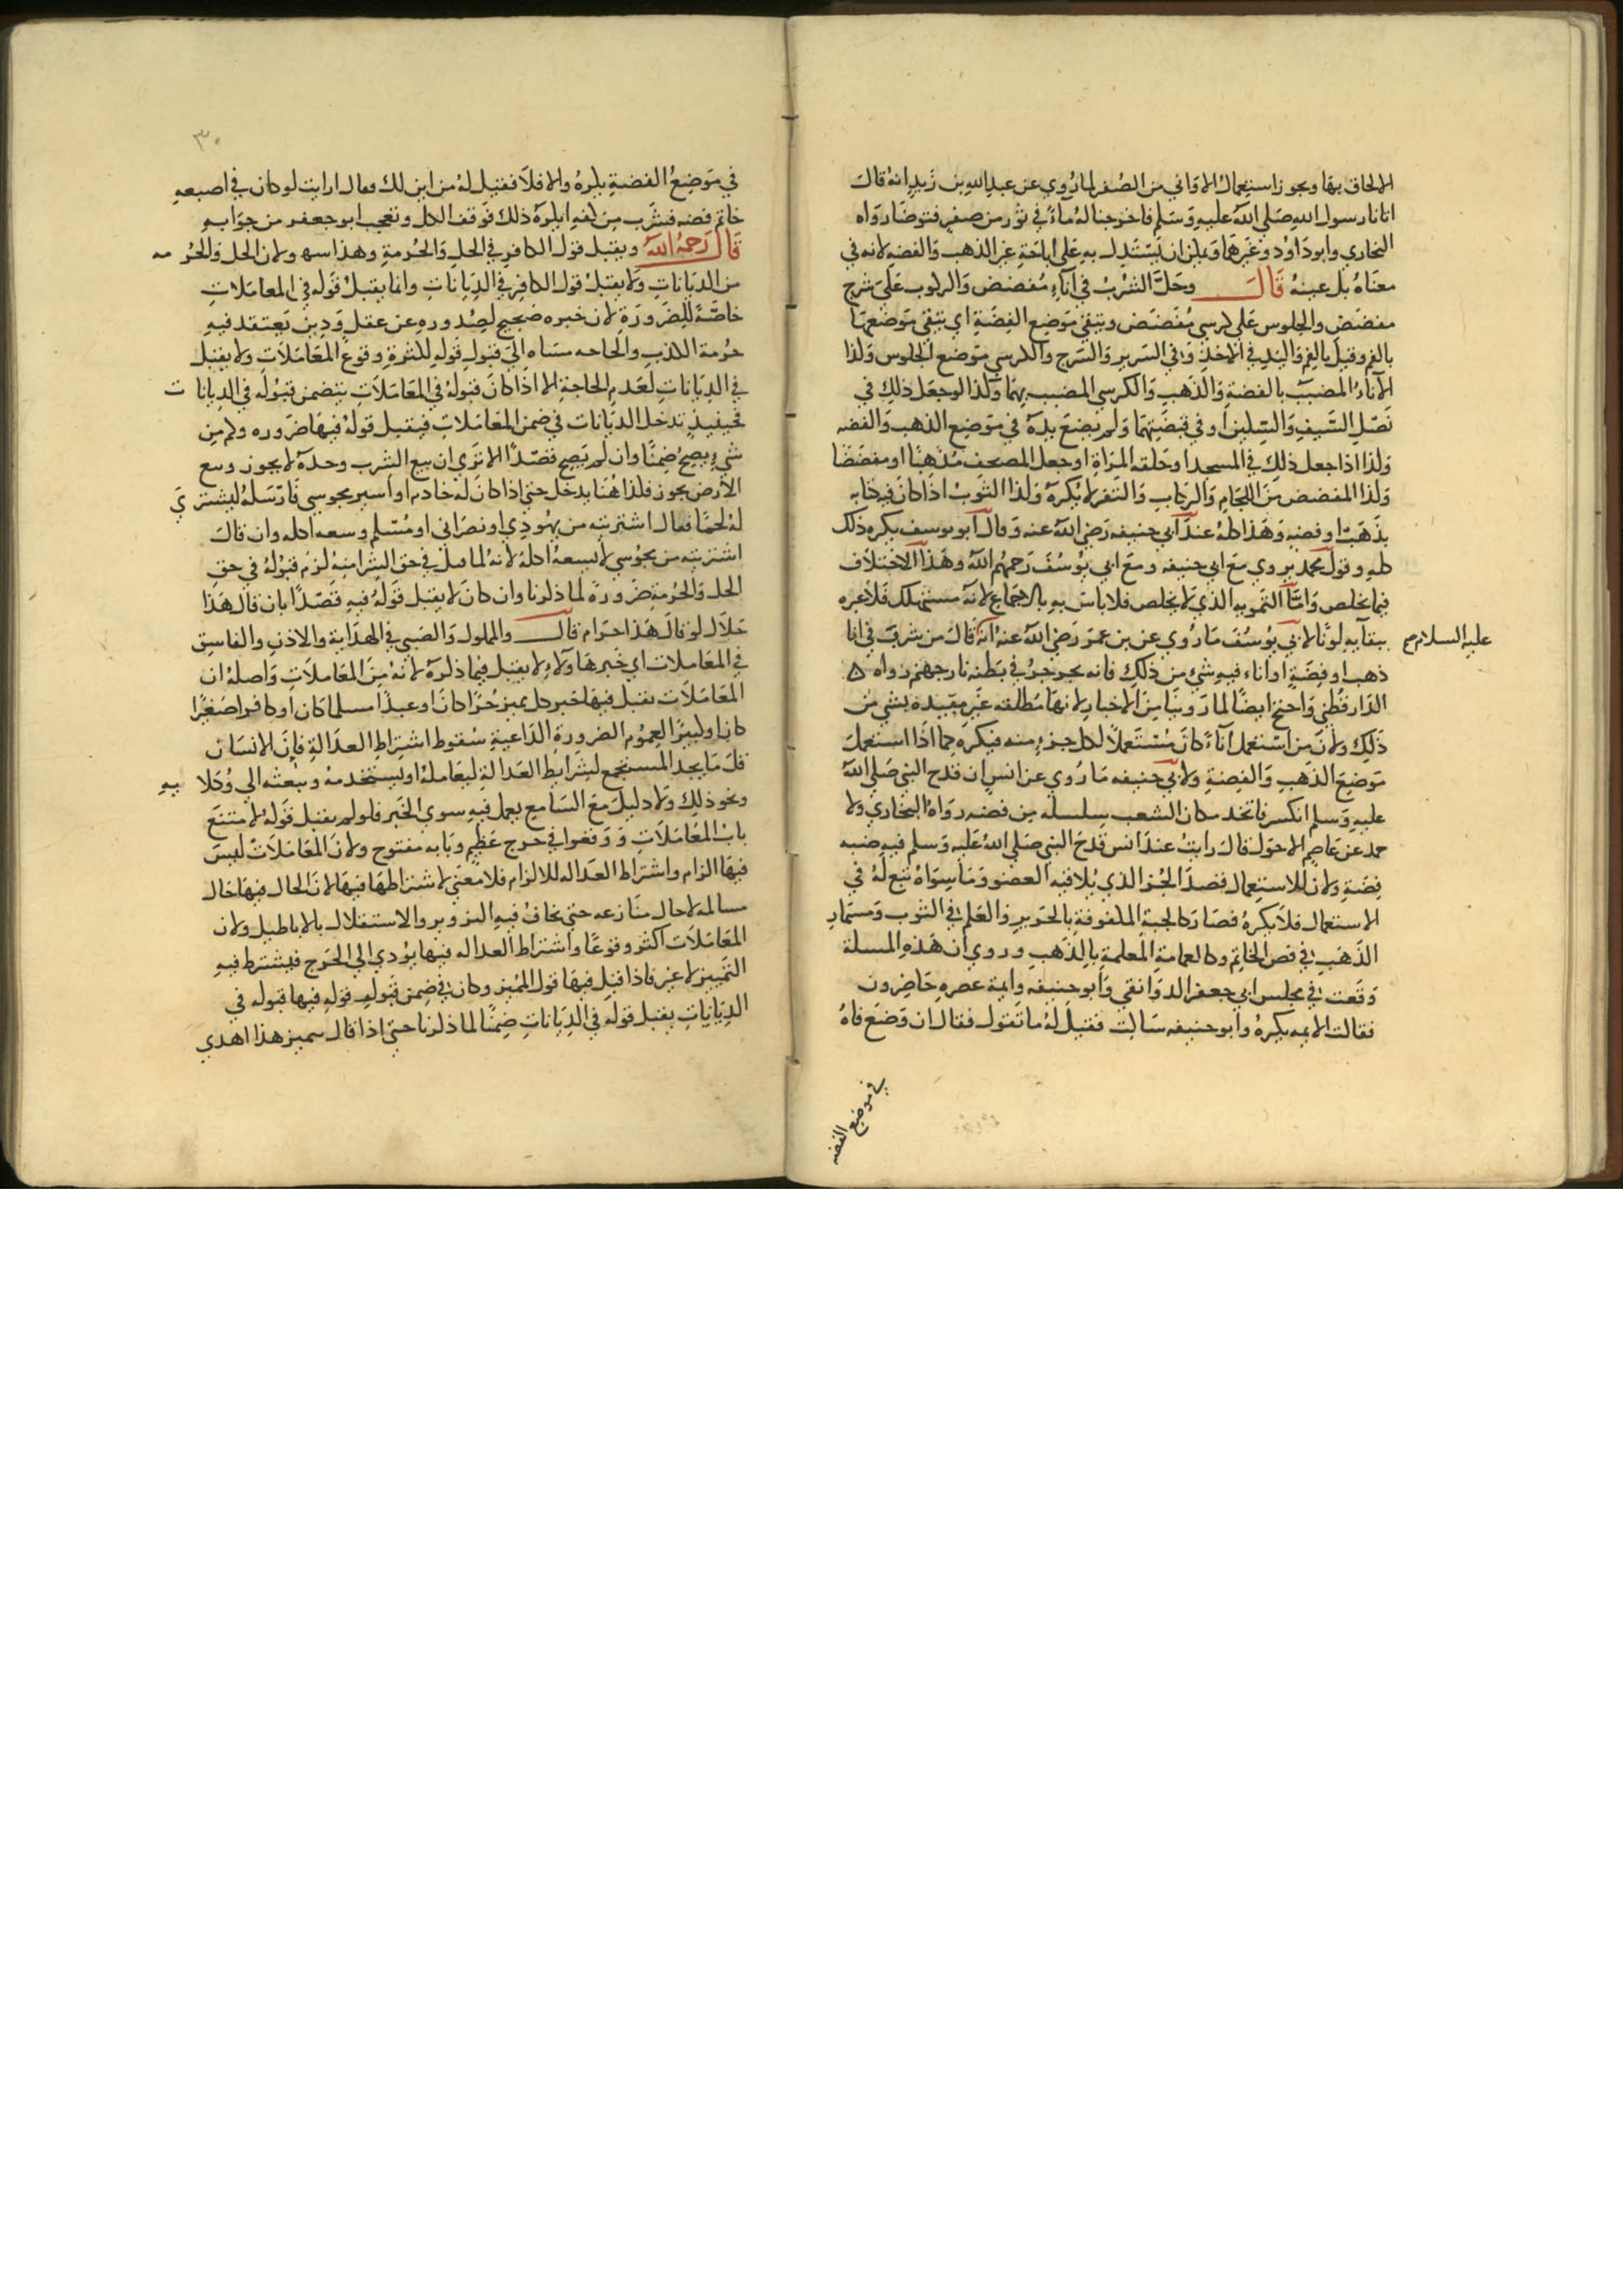 الالحاق بها ويجوز استعمال الاواني من الصفر لما روي عن عبد الله بن زيد انه قال
اتانا رسول الله صلى الله عليه وسلم فاخرجنا له ماء في تور من صفر فتوضا رواه
البخاري وابو داود وغيرهما ويمكن ان يستدل به على اباحة غير الذهب والفضه لانه في
معناه بل عينه قال وحل الشرب في اناء مفضض والركوب على سرج
مفضض والجلوس على كرسي مفضض ويتقي موضع الفضة اي يتقي موضعها
بالفم وقيل بالفم واليد في الاخذ وفي السرير والسرج والكرسي موضع الجلوس وكذا
الاناء المضبب بالفضة والذهب والكرسي المضبب بهما وكذا لو جعل ذلك في
نصل السيف والسكين او في قبضتهما ولم يضع يده في موضع الذهب والفضه
وكذا اذا جعل ذلك في المسجد او حلقه المراة او جعل المصحف مذهبا او مفضضا
وكذا المفضض من اللجام والركاب والثفر لا يكره وكذا الثوب اذا كان فيه كتابه
بذهب او فضه وهذا كله عند ابي حنيفه رضي الله عنه وقال ابو يوسف يكره ذلك
كله وقول محمد يروي مع ابي حنيفه ومع ابي يوسف رحمهم الله وهذا الاختلاف
فيما يخلص واما التمويه الذي لا يخلص فلا باس به بالاجماع لانه مستهلك فلا عبره
ببقايه لونا لابي يوسف ما روي عن بن عمر رضي الله عنه انه قال من شرب في انا
عليه السلام صح
ذهب او فضة او اناء فيه شي من ذلك فانه يجرجر في بطنه نار جهنم رواه ه
الدارقطني واحتج ايضا لما روينا من الاخبار لانها مطلقه غير مقيده بشي من
ذلك ولان من استعمل اناء كان مستعملا لكل جزء منه فيكره كما اذا استعمل
موضع الذهب والفضة ولابي حنيفه ما روي عن انس ان قدح النبي صلى الله
عليه وسلم انكسر فاتخذ مكان الشعب سلسله من فضه رواه البخاري ولا
حمد عن عاصم الاحول قال رايت عند انس قدح النبي صلى الله عليه وسلم فيه ضبه
فضة ولان الاستعمال قصد الجزء الذي يلاقيه العضو وما سواه تبع له في
الاستعمال فلا يكره فصار كالجبة الملفوفة بالحرير والعلم في الثوب ومسمار
الذهب في فص الخاتم وكالعمامة المعلمة بالذهب وروي ان هذه المسلة
وقعت في مجلس ابي جعفر الدوانقي وابو حنيفه وايمة عصره حاضرون
فقالت الايمه يكره وابو حنيفه ساكت فقيل له ما تقول فقال ان وضع فاه
في موضع الفضه
٣٠
في موضع الفضة يكره والا فلا فقيل له من اين لك فقال ارايت لو كان في اصبعه
خاتم فضه فشرب من كفه ايكره ذلك فوقف الكل وتعجب ابو جعفر من جوابه
قال رحمه الله ويقبل قول الكافر في الحل والحرمة وهذا سهو لان الحل والحرمه
من الديانات ولا يقبل قول الكافر في الديانات وانما يقبل قوله في المعاملات
خاصة للضرورة لان خبره صحيح لصدوره عن عقل ودين يعتقد فيه
حرمة الكذب والحاجه ماسه الى قبول قوله لكثرة وقوع المعاملات ولا يقبل
في الديانات لعدم الحاجة الا اذا كان قبوله في المعاملات يتضمن قبوله في الديانات
فحينيذ تدخل الديانات في ضمن المعاملات فيقبل قوله فيها ضروره وكم من
شيء يصح ضمنا وان لم يصح قصدا الا ترى ان بيع الشرب وحده لا يجوز ومع
الارض يجوز فكذا هنا يدخل حتى اذا كان له خادم او اسير مجوسي فارسله ليشتري
له لحما فقال اشتريته من يهودي او نصراني او مسلم وسعه اكله وان قال
اشتريته من مجوسي لا يسعه اكله لانه لما قبل في حق الشرا منه لزم قبوله في حق
الحل والحرمة ضرورة لما ذكرنا وان كان لا يقبل قوله فيه قصدا بان قال هذا
حلال لو قال هذا حرام قال والمملوك والصبي في الهداية والاذن والفاسق
في المعاملات اي خبر هاولاء لا يقبل فيما ذكره لانه من المعاملات واصله ان
المعاملات يقبل فيها خبر كل مميز حرا كان او عبدا مسلما كان او كافرا صغيرا
كان او كبيرا لعموم الضرورة الداعية سقوط اشتراط العدالة فان الانسان
قل ما يجد المستجمع لشرايط العدالة ليعامله او يستخدمه ويبعثه الى وكلايه
ونحو ذلك ولا دليل مع السامع يعمل فيه سوى الخبر فلو لم يقبل قوله لامتنع
باب المعاملات ووقعوا في حرج عظيم وبابه مفتوح ولان المعاملات ليس
فيها الزام واشتراط العداله للالزام فلا معنى لاشتراطها فيها لان الحال فيها حال
مسالمه لا حال منازعه حتى يخاف فيه التزوير والاستقلال بالاباطيل ولان
المعاملات اكثر وقوعا واشتراط العداله فيها يؤدي الى الحرج فيشترط فيه
التمييز لا غير فاذا قبل فيها قول المميز وكان في ضمن قبوله قوله فيها قبوله في
الديانات يقبل قوله في الديانات ضمنا لما ذكرنا حتى اذا قال مميز هذا اهدي